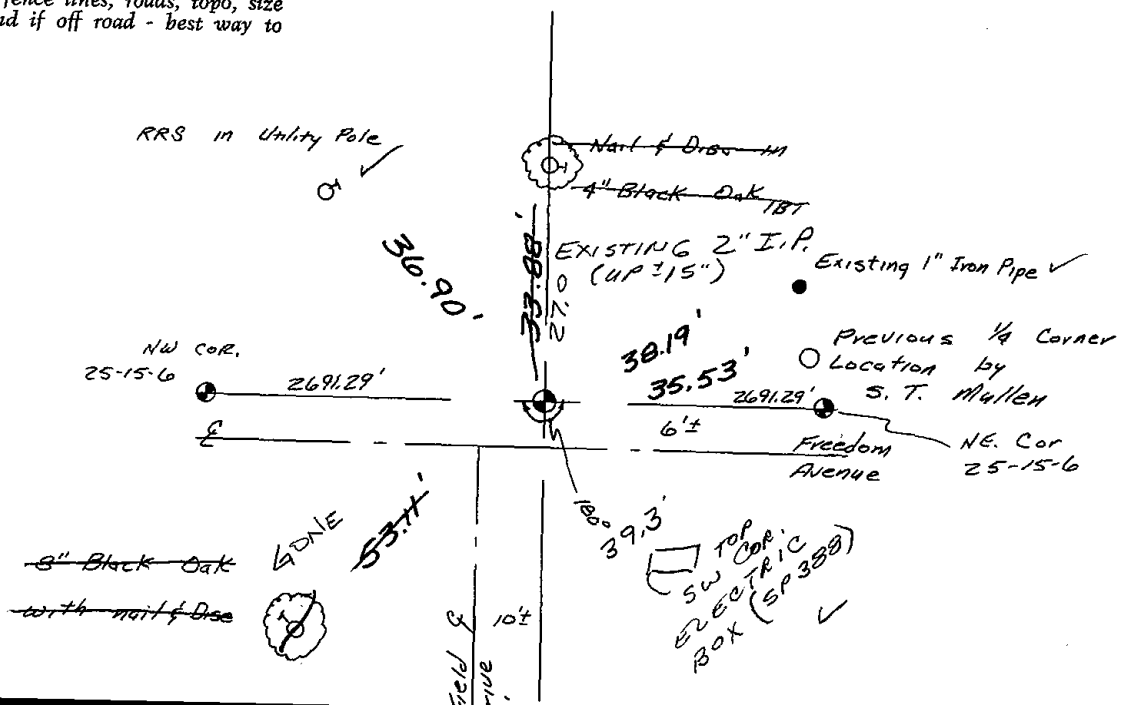 fence lines, roads, topo, size
nd if off road - best way to
RRS in Utility Pole
Nail & Disc in
4" Black Oak
IBT
EXISTING 2" I.P.
(UP ±15")
Existing 1" Iron Pipe ✓
36.90'
33.88'
Previous 1/4 Corner
Location by
S. T. Mullen
38.19'
35.53'
NW COR.
25-15-6
2691.29'
2691.29'
6'±
Freedom
Avenue
NE. Cor
25-15-6
180°
39.3'
TOP
SW COR.
ELECTRIC
BOX (SP388)
53.11'
GONE
8" Black Oak
with nail & Disc
10'±
Field